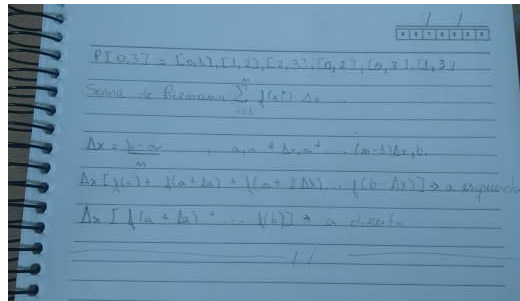 P[0,3] = [0,1], [1,2], [2,3], [0,2], [0,3], [1,3]
Soma de Riemann \sum_{i=1}^{n} f(x_i^*) Δx
Δx = \frac{b-a}{n} , a, a+Δx, a+ ... (n-1)Δx, b.
Δx [f(a) + f(a+Δx) + f(a+2Δx) ... f(b-Δx)] → a esquerda
Δx [f(a+Δx) + ... f(b)] → a direita